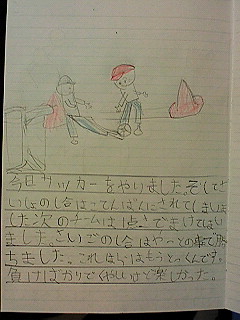 今日サッカーをやりましたそしてさ
いしょのし合は、てんぱんにされてしまいま
した次のチームは1点さでまけてしまい
ました。さいごのし合はやっとの事で勝
ちました。これからはもうとっくんです。
負けばかりでくやしいけど楽しかった。